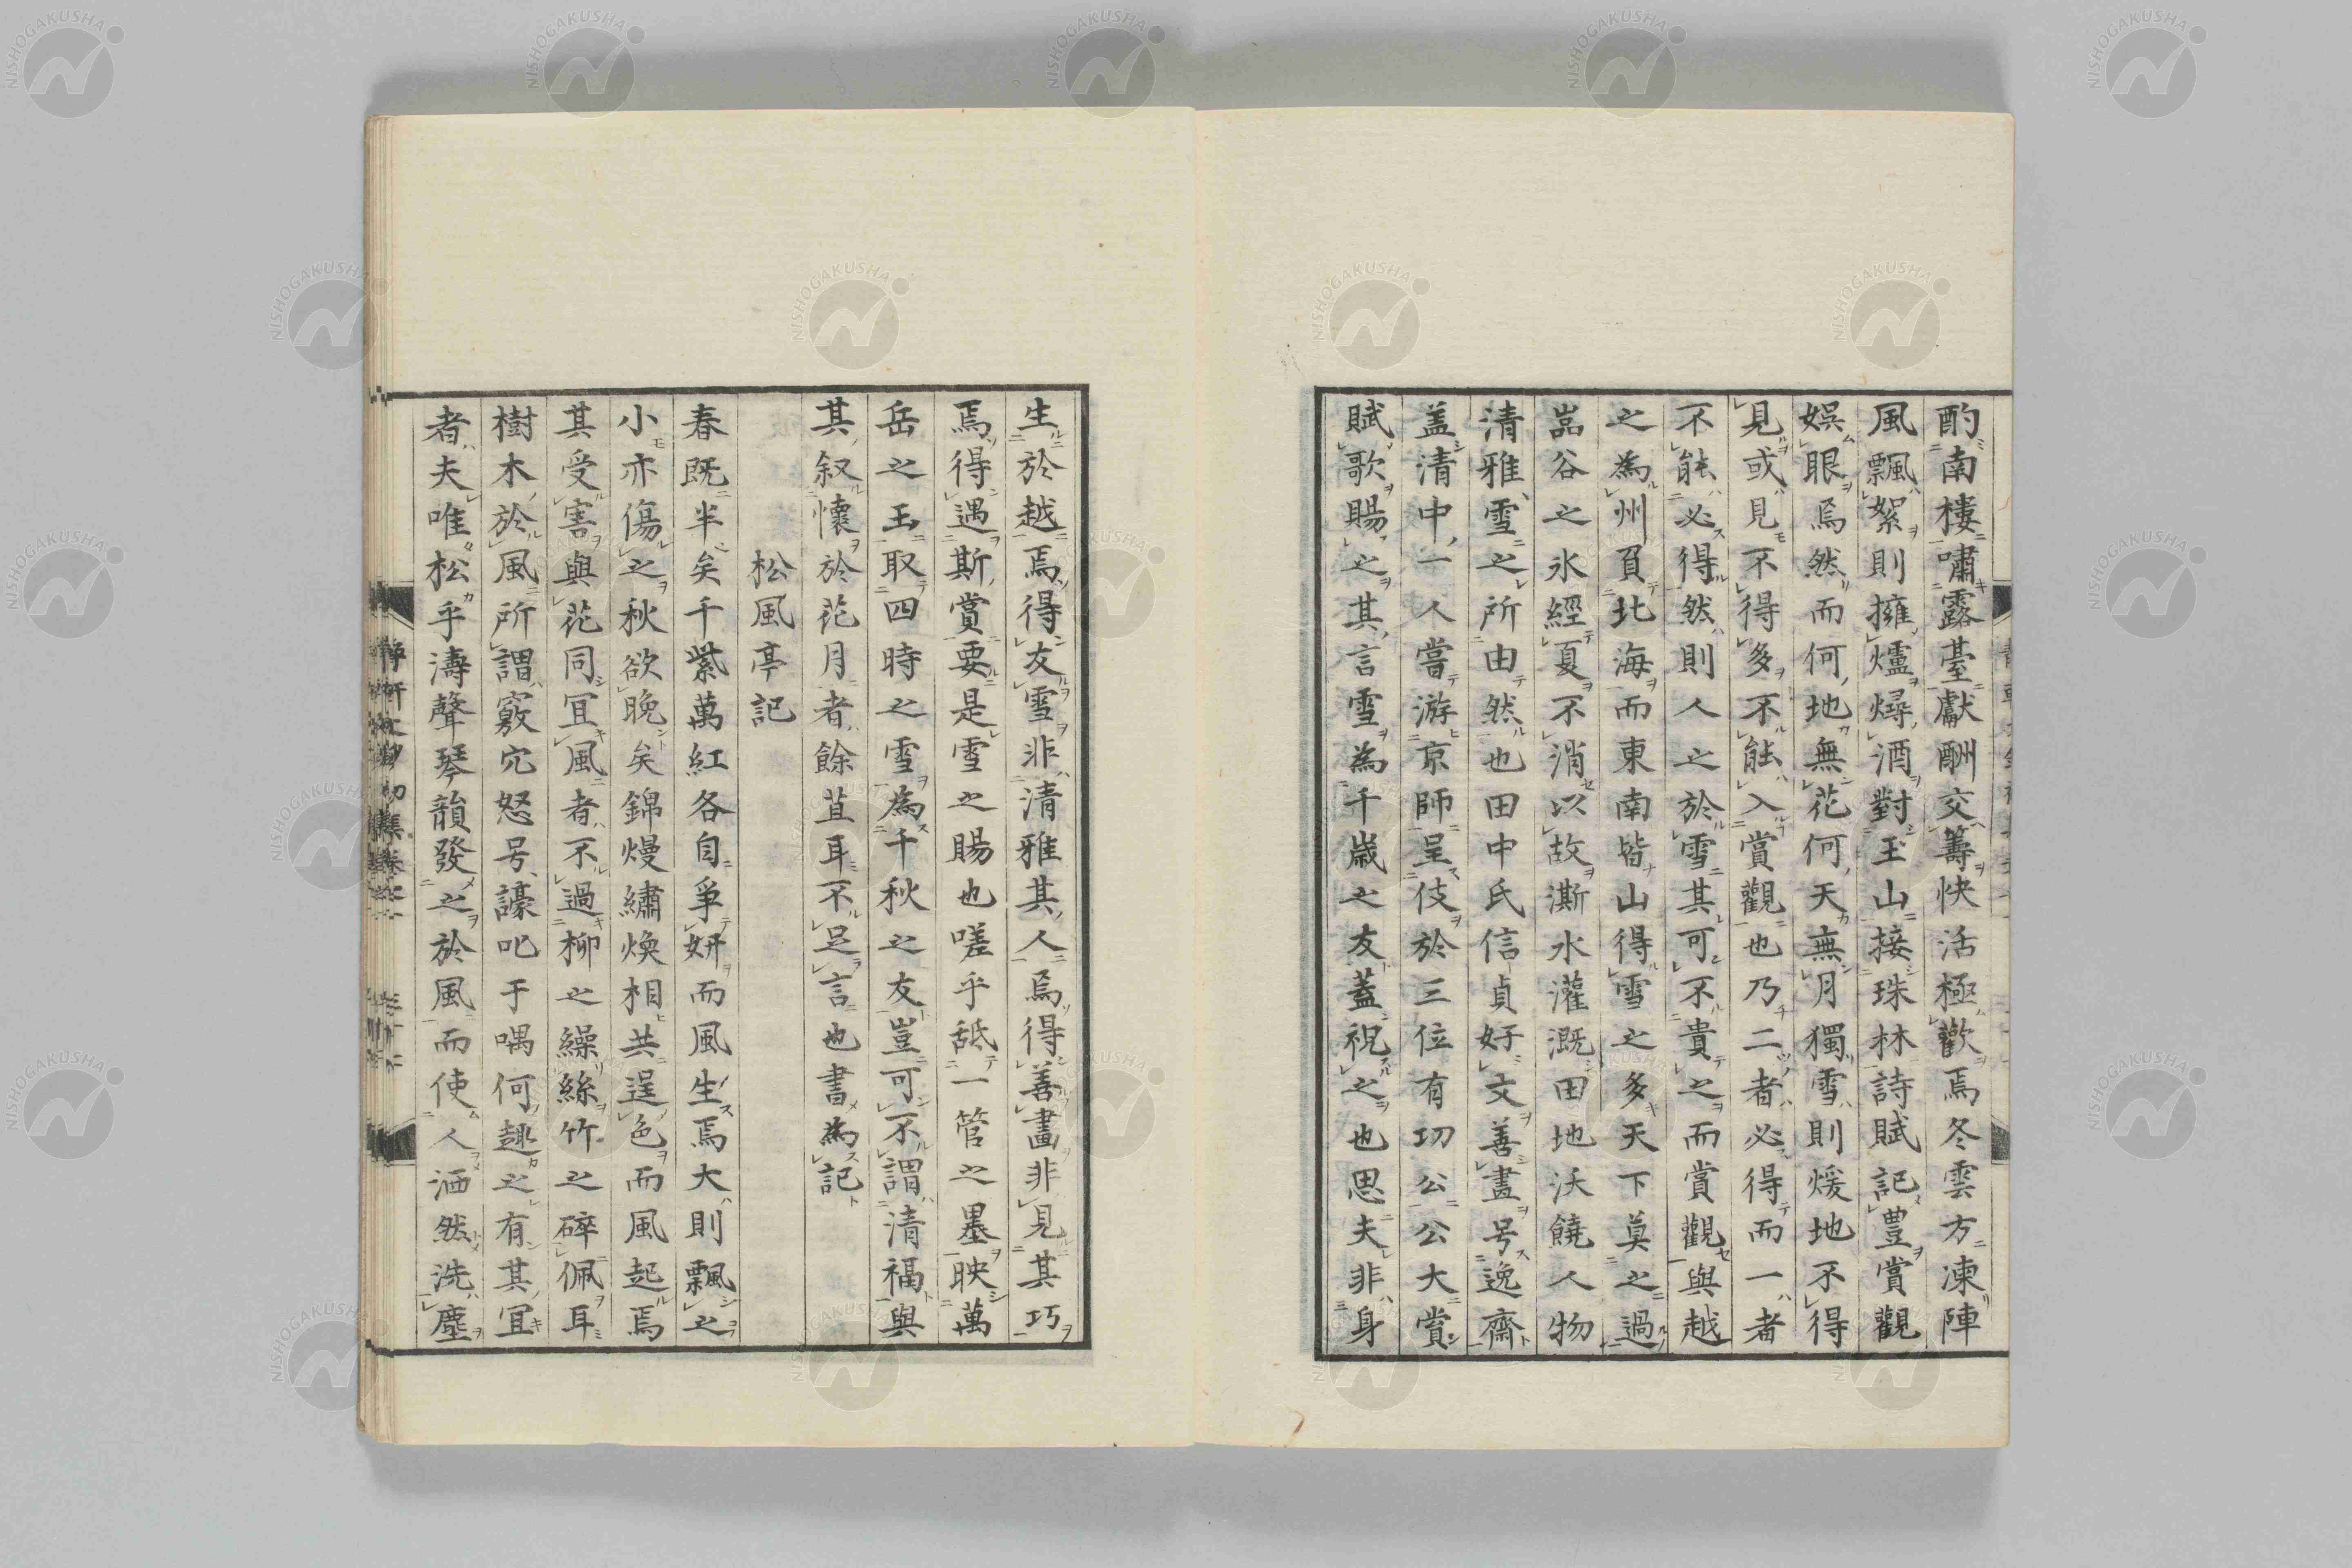 酌南樓嘯露臺獻酬交籌快活極歡焉冬雲方凍陣
風飄絮則擁爐燖酒對玉山接珠林詩賦記豊賞觀
娯眼焉然而何地無花何天無月獨雪則煖地不得
見或見不得多不能入賞觀也乃二者必得而一者
不能必得然則人之於雪其可不貴之而賞觀與越
之為州負北海而東南皆山得雪之多天下莫之過
嵓谷之氷經夏不消以故澌水灌漑田地沃饒人物
清雅雪之所由然也田中氏信貞好文善畫号逸齋
盖清中一人嘗游京師呈伎於三位有功公公大賞
賦歌賜之其言雪為千歳之友蓋祝之也思夫非身
生於越焉得友雪非清雅其人焉得善畫非見其巧
焉得遇斯賞要是雪之賜也嗟乎舐一管之墨映萬
岳之玉取四時之雪為千秋之友豈可不謂清福與
其叙懐於花月者餘苴耳不足言也書為記
松風亭記
春既半矣千紫萬紅各自爭妍而風生焉大則飄之
小亦傷之秋欲晩矣錦熳繡煥相共逞色而風起焉
其受害與花同冝風者不過柳之繰絲竹之碎佩耳
樹木於風所謂竅穴怒号謷叱于喁何趣之有其冝
者夫唯松乎濤聲琴韻發之於風而使人洒然洗塵
NISHOGAKUSHA